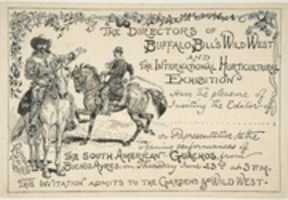 THE DIRECTORS OF
BUFFALO BILL'S WILD WEST
AND
THE INTERNATIONAL HORTICULTURAL
EXHIBITION
Have the pleasure of
Inviting the Editor of
or Representative to the
Opening performances of
THE SOUTH AMERICAN GAUCHOS, from
BUENOS AYRES, on Thursday June 23rd at 3 P.M.
THIS INVITATION ADMITS TO THE GARDENS & WILD WEST.